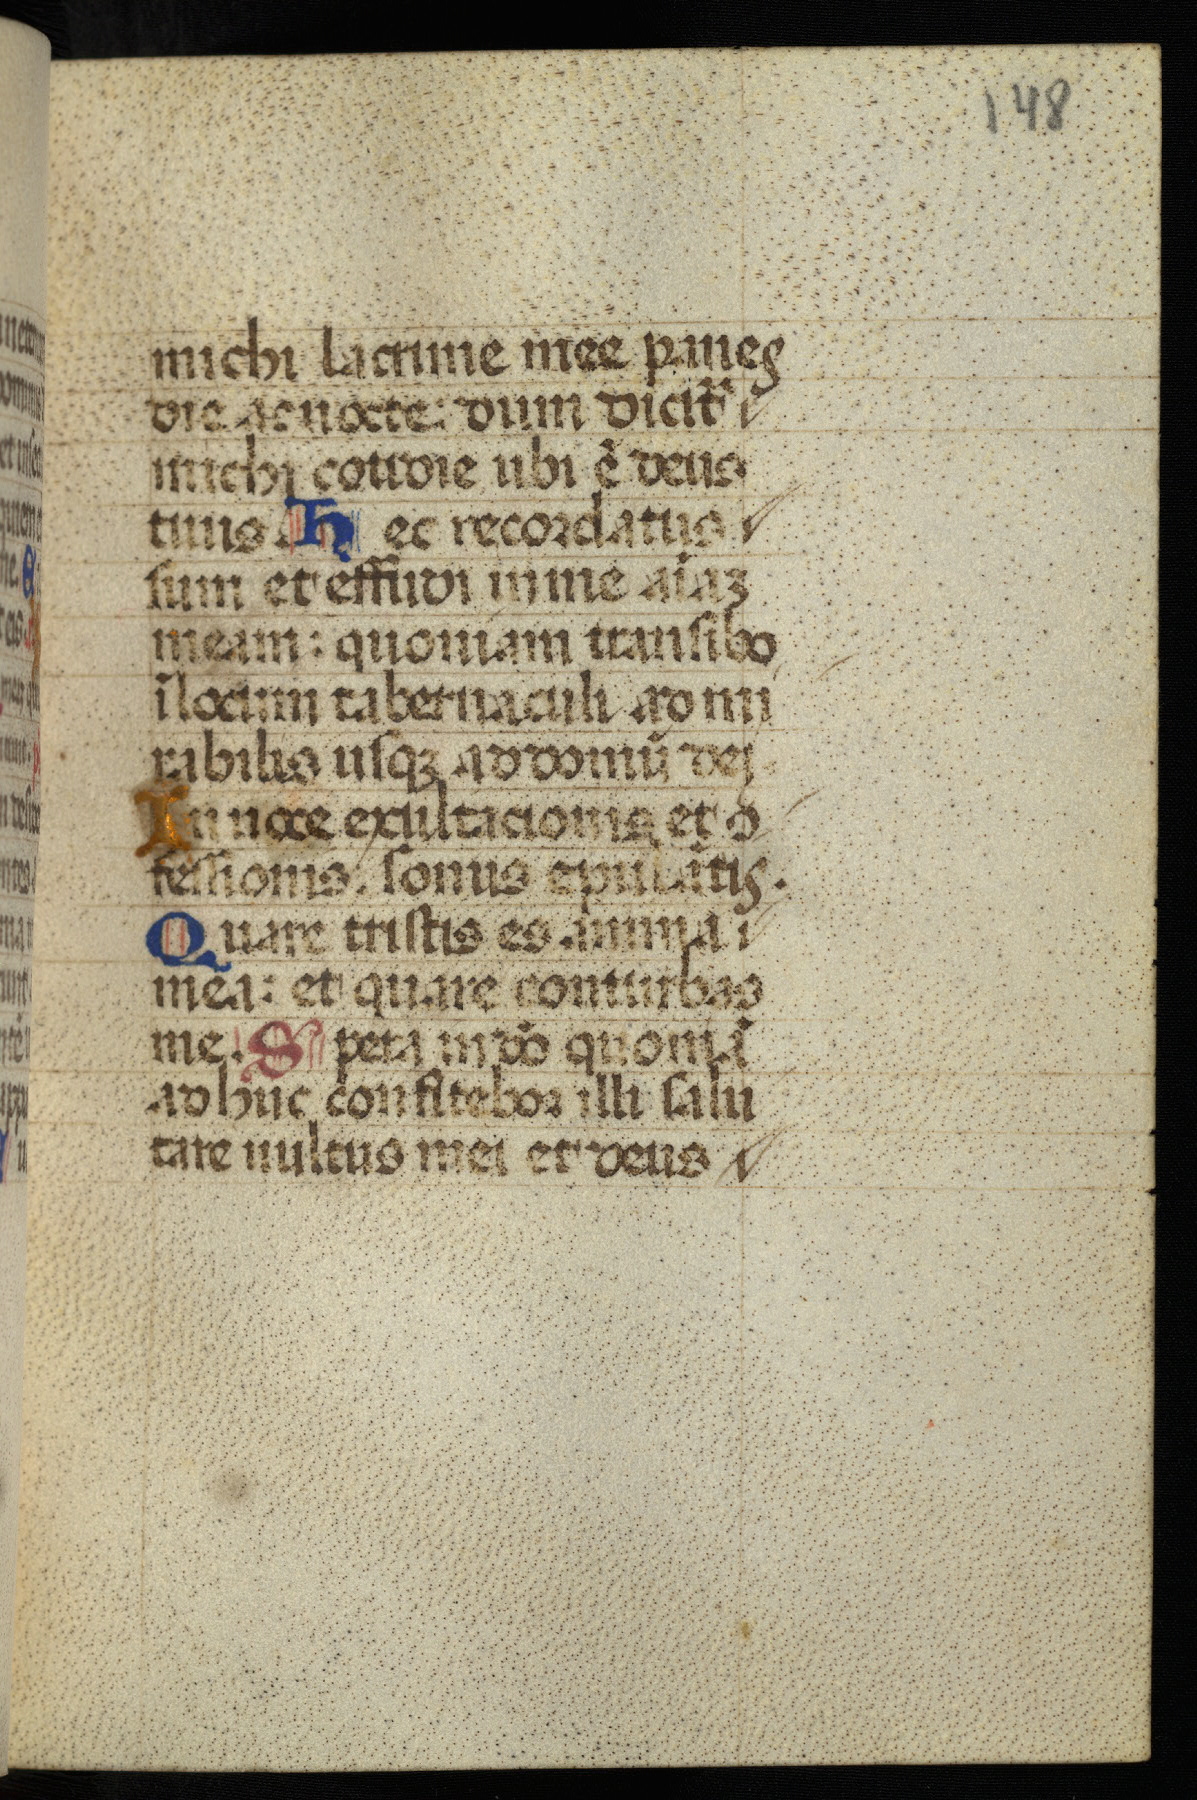 148
michi lacrime mee panes
die ac nocte: dum dicit᷑
michi cotidie ubi ē deus
tuus. Hec recordatus
sum et effudi in me aīaꝫ
meam: quoniam transibo
ī locum tabernaculi ad mi
rabilis usqꝫ ad domū dei
In uoce exultacionis et ↄ̄
fessionis. sonus epulātis.
Quare tristis es anima
mea: et quare conturbas
me. Spera in dō quoniā
adhuc confitebor illi salu
tare uultus mei et deus